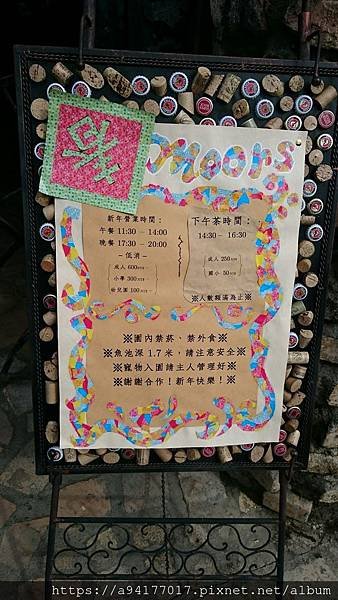 春
moors
新年營業時間：
午餐 11:30 – 14:00
晚餐 17:30 – 20:00
– 低消 –
成人 600
小學 300
幼兒園 100
下午茶時間：
14:30 - 16:30
成人 250
國小 50
※人數額滿為止※
※園內禁菸、禁外食※
※魚池深 1.7 米，請注意安全※
※寵物入園請主人管理好※
※謝謝合作！新年快樂！※
https://a94177017.pixnet.net/album